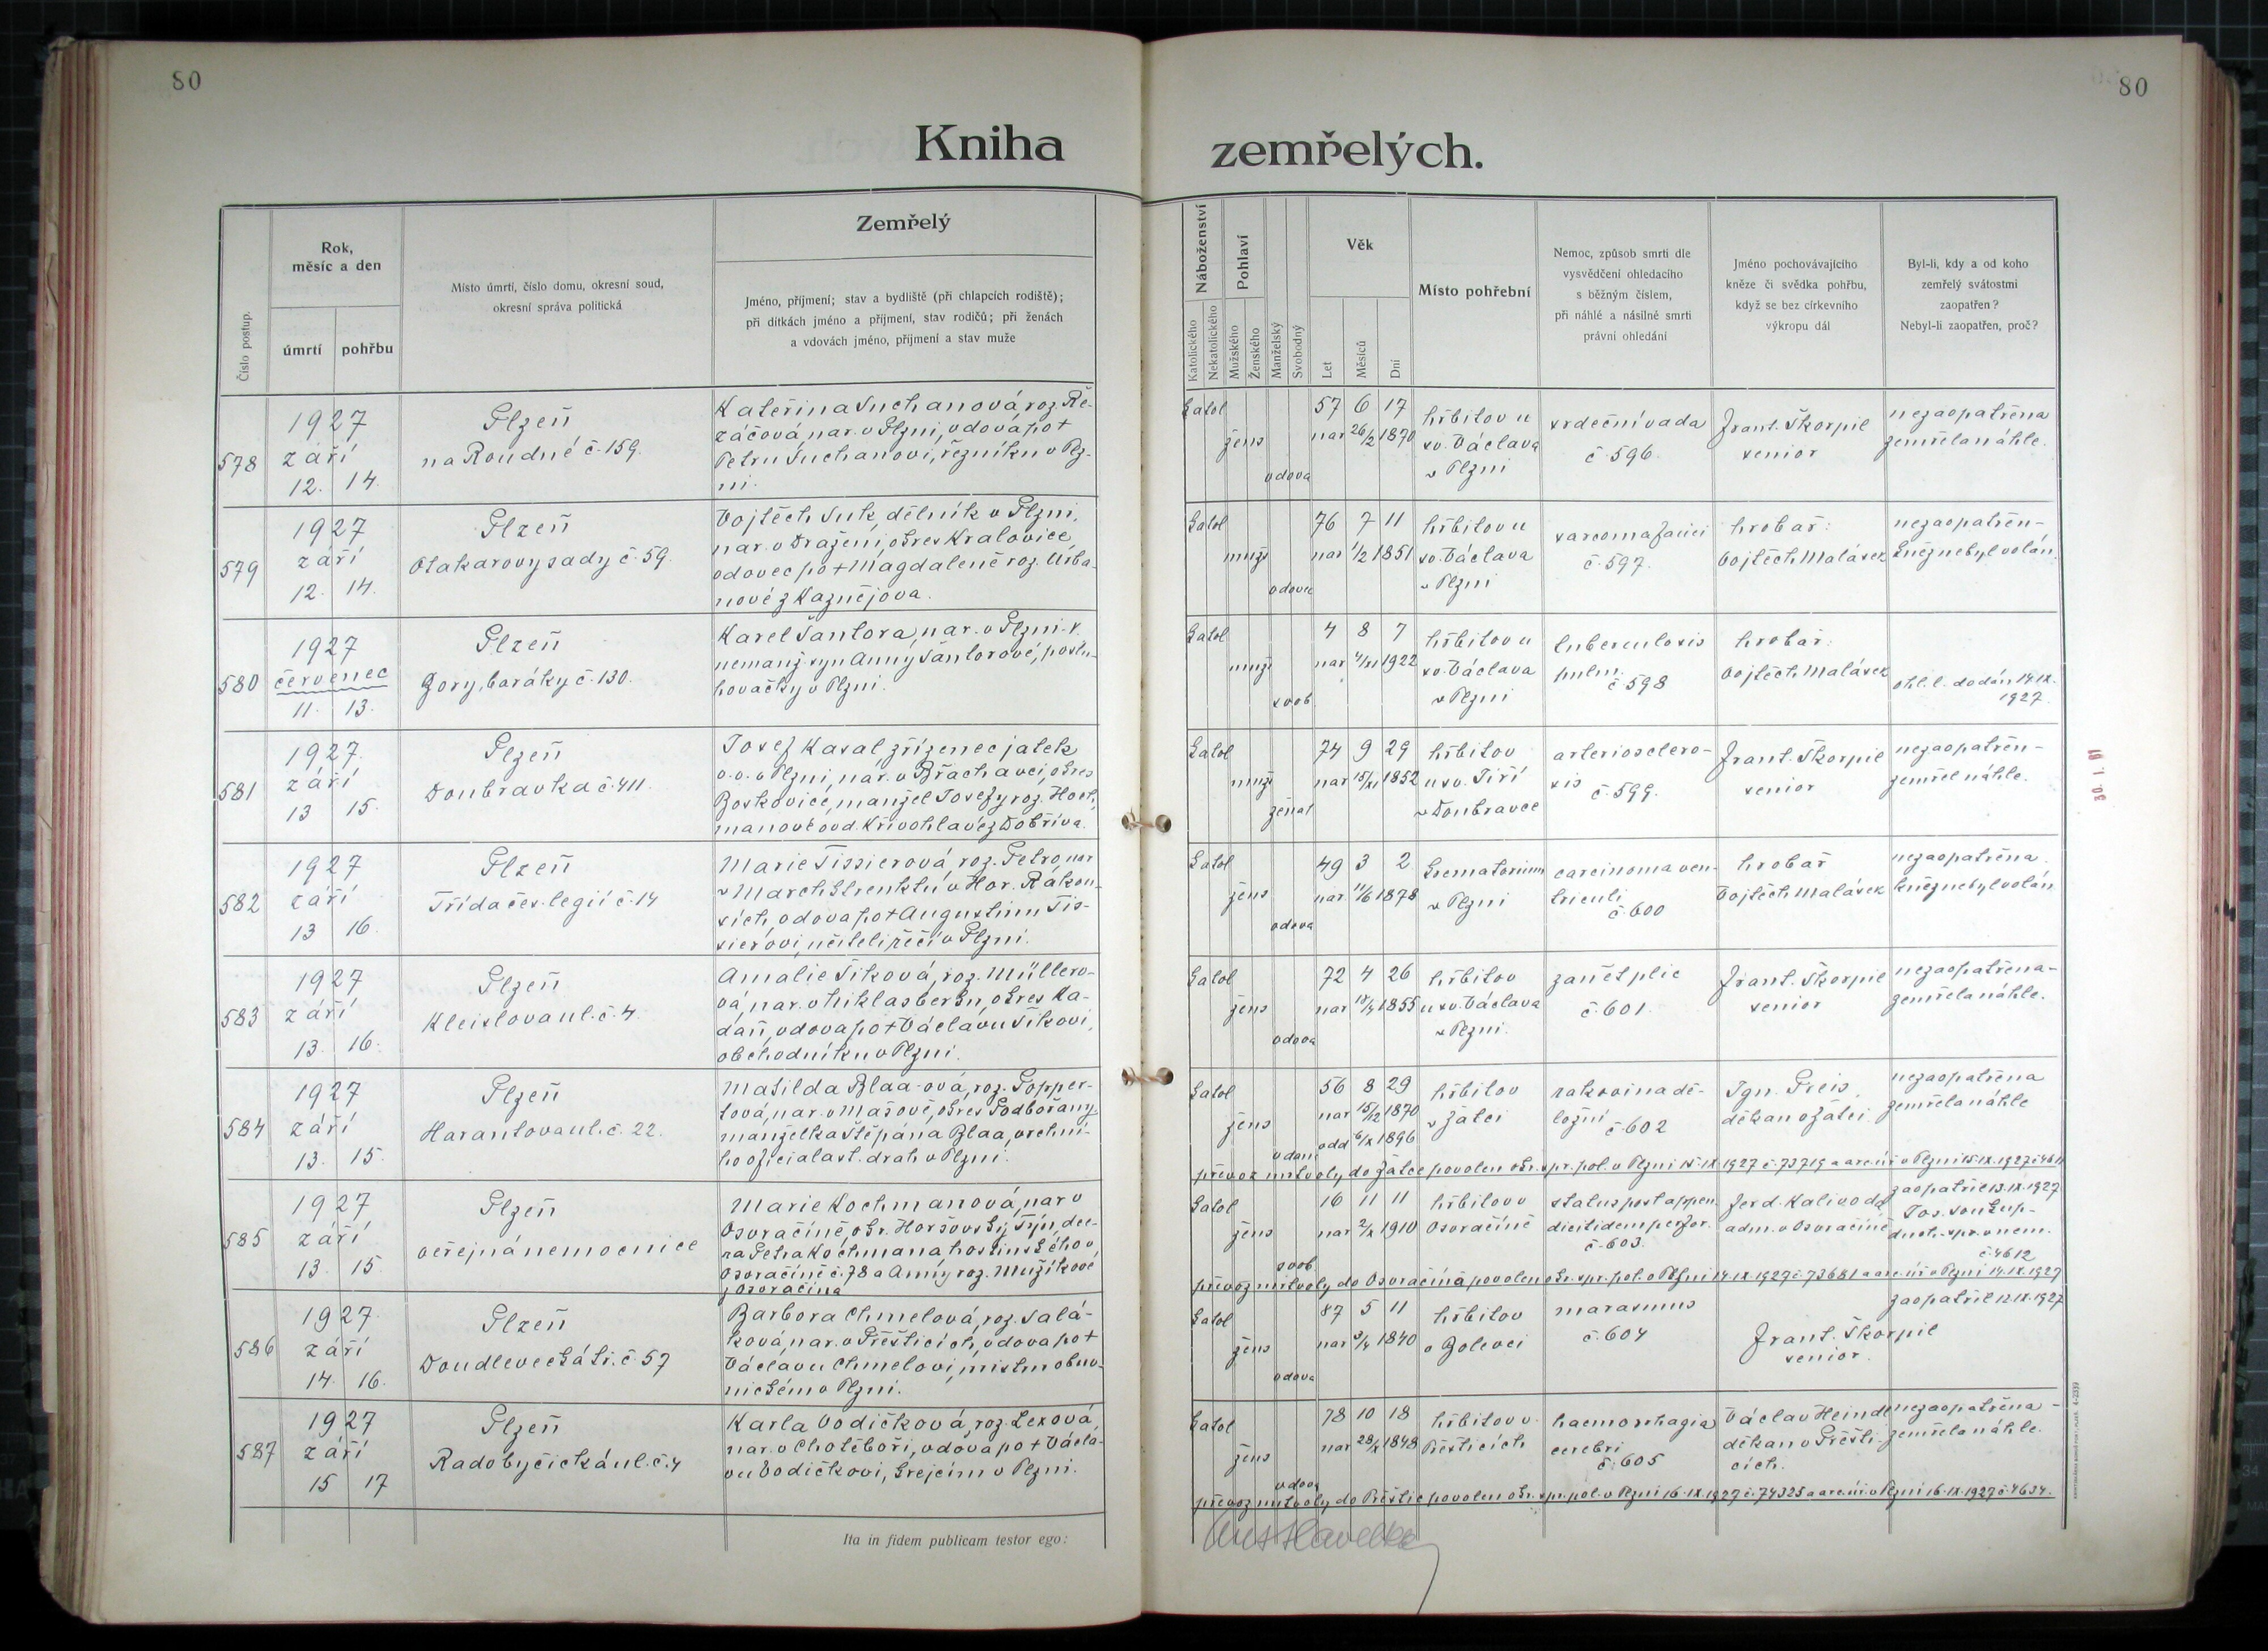 80
80
Kniha zemřelých.
Číslo postup.
Rok,
měsíc a den
úmrtí
pohřbu
Místo úmrtí, číslo domu, okresní soud,
okresní správa politická
Zemřelý
Jméno, příjmení; stav a bydliště (při chlapcích rodiště);
při dítkách jméno a příjmení, stav rodičů; při ženách
a vdovách jméno, příjmení a stav muže
Náboženství
Katolického
Nekatolického
Pohlaví
Mužského
Ženského
Manželský
Svobodný
Věk
Let
Měsíců
Dní
Místo pohřební
Nemoc, způsob smrti dle
vysvědčení ohledacího
s běžným číslem,
při náhlé a násilné smrti
právní ohledání
Jméno pochovávajícího
kněze či svědka pohřbu,
když se bez církevního
výkropu dál
Byl-li, kdy a od koho
zemřelý svátostmi
zaopatřen?
Nebyl-li zaopatřen, proč?
578
1927
září
12. 14.
Plzeň
na Roudné č. 159.
Kateřina Suchanová, roz. Ře-
záčová, nar. v Plzni, vdova po +
Petru Suchanovi, řezníku v Plz-
ni.
katol
žens
vdova
57 6 17
nar 26/2 1870
hřbitov u
sv. Václava
v Plzni
srdeční vada
č. 596.
Frant. Škorpil
senior
nezaopatřena
zemřela náhle.
579
1927
září
12. 14.
Plzeň
Otakarovy sady č. 59.
Vojtěch Suk, dělník v Plzni,
nar. v Dražení, okres Kralovice,
vdovec po + Magdaleně roz. Urba-
nové z Kaznějova.
katol
muž
vdovec
76 7 11
nar 1/2 1851
hřbitov u
sv. Václava
v Plzni
sarcoma faciei
č. 597.
hrobař:
Vojtěch Malásek
nezaopatřen-
kněz nebyl volán.
580
1927
červenec
11. 13.
Plzeň
Zory, baráky č. 130.
Karel Šantora, nar. v Plzni.
nemanž. syn Anny Šantorové, poslu-
hovačky v Plzni.
katol
muž
svob
4 8 7
nar 4/XI 1922
hřbitov u
sv. Václava
v Plzni
tuberculosis
pulm.
č. 598
hrobař:
Vojtěch Malásek
ohl. l. dodán 14.IX.
1927.
581
1927.
září
13 15.
Plzeň
Doubravka č. 411.
Josef Kasal zřízenec jatek
v. v. v Plzni, nar. v Břachavci, okres
Boskovice, manžel Josefy roz. Hoch-
manové ovd. Křivohlavé z Dobříva.
katol
muž
ženat
74 9 29
nar 15/XI 1852
hřbitov
u sv. Jiří
v Doubravce
arteriosclero-
sis
č. 599.
Frant. Škorpil
senior
nezaopatřen-
zemřel náhle.
582
1927
září
13 16.
Plzeň
Třída čes. legií č. 14
Marie Tissierová, roz. Petro, nar
v March Strenktú v Hor. Rakou-
sích, vdova po + Augustinu Tis-
sierovi, učiteli řečí v Plzni.
katol
žens
vdova
49 3 2
nar 11/6 1878
krematorium
v Plzni
carcinoma ven-
triculi
č. 600
hrobař
Vojtěch Malásek
nezaopatřena
kněz nebyl volán
583
1927
září
13. 16.
Plzeň
Kleislova ul. č. 4.
Amalie Šiková, roz. Müllero-
vá, nar. v Niklasberku, okres Ka-
daň, vdova po + Václavu Šikovi,
obchodníku v Plzni.
katol
žens
vdova
72 4 26
nar 18/4 1855
hřbitov
u sv. Václava
v Plzni.
zánět plic
č. 601.
Frant. Škorpil
senior
nezaopatřena-
zemřela náhle.
584
1927
září
13. 15.
Plzeň
Harantova ul. č. 22.
Matilda Blaa-ová, roz. Popper-
lová, nar. v Mašově, okres Podbořany,
manželka Štěpána Blaa, vrchní-
ho oficiala st. drah v Plzni.
katol
žens
vdan
56 8 29
nar 15/12 1870
odd 6/X 1896
hřbitov
v Žatci
rakovina dě-
ložní
č. 602
Ign. Preis,
děkan v Žatci
nezaopatřena
zemřela náhle
převoz mrtvoly do Žatce povolen okr. spr. pol. v Plzni 15.IX.1927 č. 73719 a arc. úř. v Plzni 15.IX.1927 č. 4611
585
1927
září
13. 15.
Plzeň
veřejná nemocnice
Marie Kochmanová, nar v
Osvračíně, okr. Horšovský Týn, dce-
ra Petra Kochmana hostinského v
Osvračíně č. 78 a Anny roz. Mužíkové
z Osvračína
katol
žens
svob
16 11 11
nar 2/X 1910
hřbitov v
Osvračíně
status post appen-
dicitidem perfor.
č. 603.
Ferd. Kalivoda
adm. v Osvračíně
zaopatřil 13.IX.1927
Jos. Soukup-
duch. spr. v nem.
č. 4612
převoz mrtvoly do Osvračína povolen okr. spr. pol. v Plzni 14.IX.1927 č. 73681 a arc. úř. v Plzni 14.IX.1927
586
1927.
září
14. 16.
Plzeň
Doudlevecká tř. č. 57
Barbora Chmelová, roz. Salá-
ková, nar. v Přešticích, vdova po +
Václavu Chmelovi, mistru obuv-
nickém v Plzni.
katol
žens
vdova
87 5 11
nar 3/4 1840
hřbitov
v Bolevci
marasmus
č. 604
Frant. Škorpil
senior.
zaopatřil 12.IX.1927
587
1927
září
15 17
Plzeň
Radobyčická ul. č. 4
Karla Vodičková, roz. Lexová,
nar. v Chotěboři, vdova po + Václa-
vu Vodičkovi, krejčím v Plzni.
katol
žens
vdova
78 10 18
nar 28/X 1848
hřbitov v
Přešticích
haemorrhagia
cerebri
č. 605
Václav Heindl
děkan v Přešti-
cích.
nezaopatřena-
zemřela náhle.
převoz mrtvoly do Přeštic povolen okr. spr. pol. v Plzni 16.IX.1927 č. 74325 a arc. úř. v Plzni 16.IX.1927 č. 4634.
Ita in fidem publicam testor ego:
30. I. 61